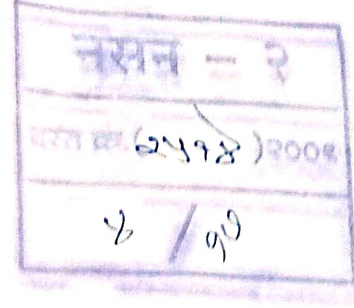 नसन - २
दस्त क्र. (२५१४) २००९
४ / १७